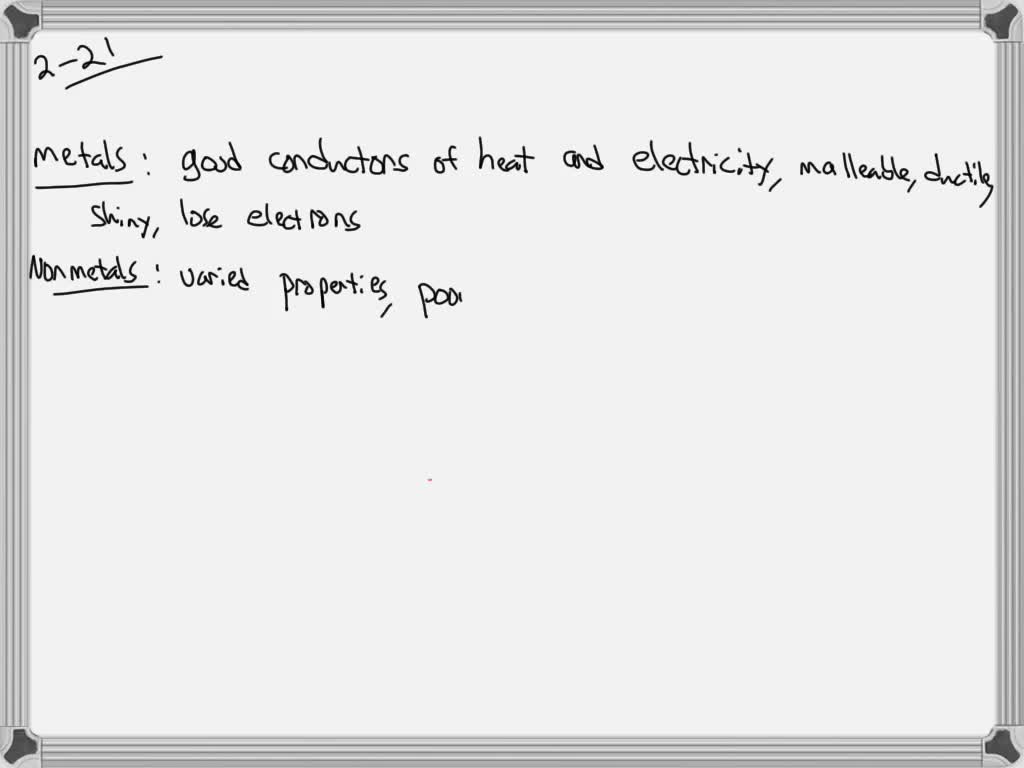 2-21
metals: good conductors of heat and electricity, malleable, ductile,
shiny, lose electrons
Nonmetals: varied properties, poor